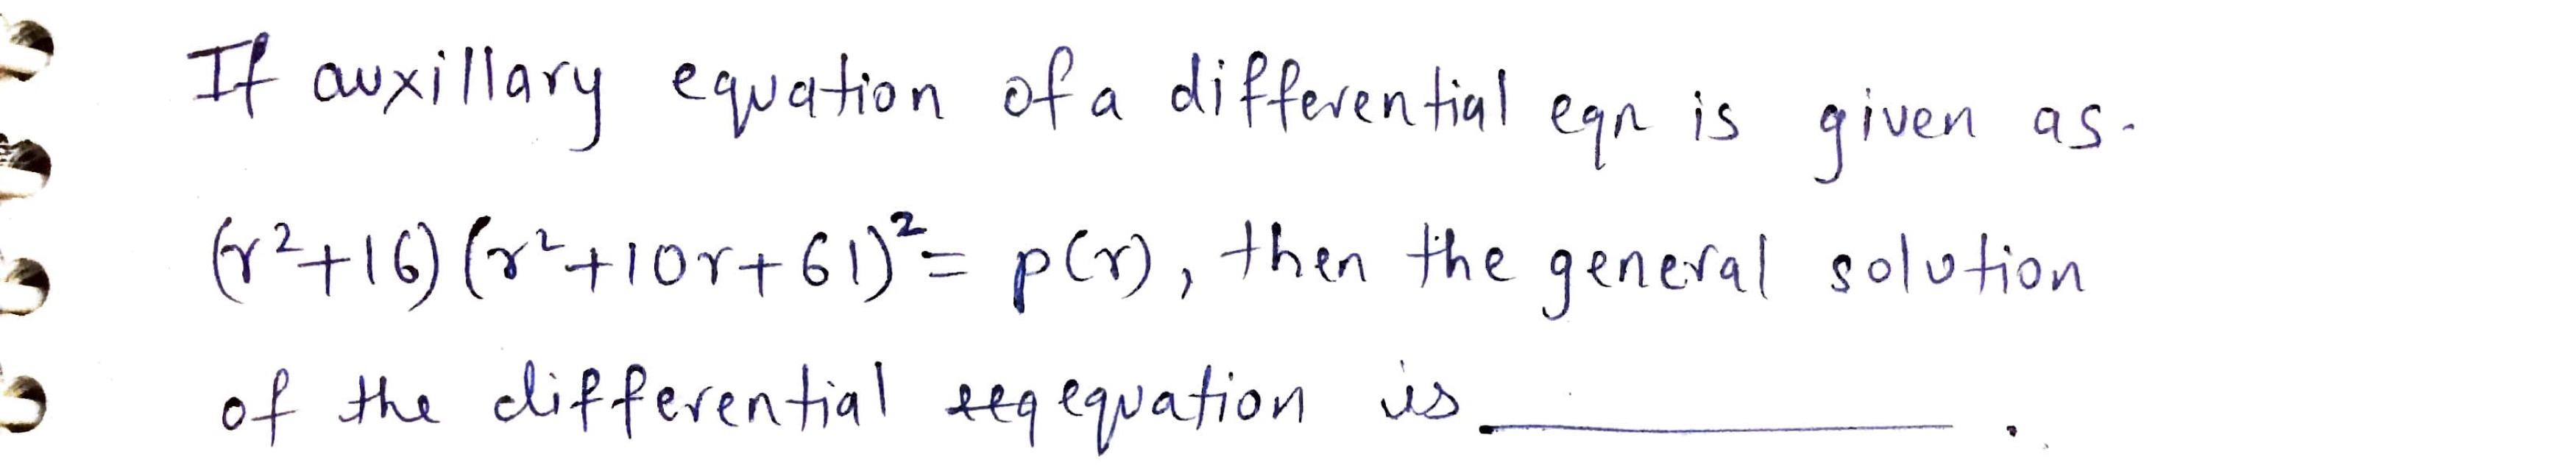 If auxillary equation of a differential eqn is given as-
(r²+16)(r²+10r+61)²= p(r), then the general solution
of the differential eeq equation is ________.